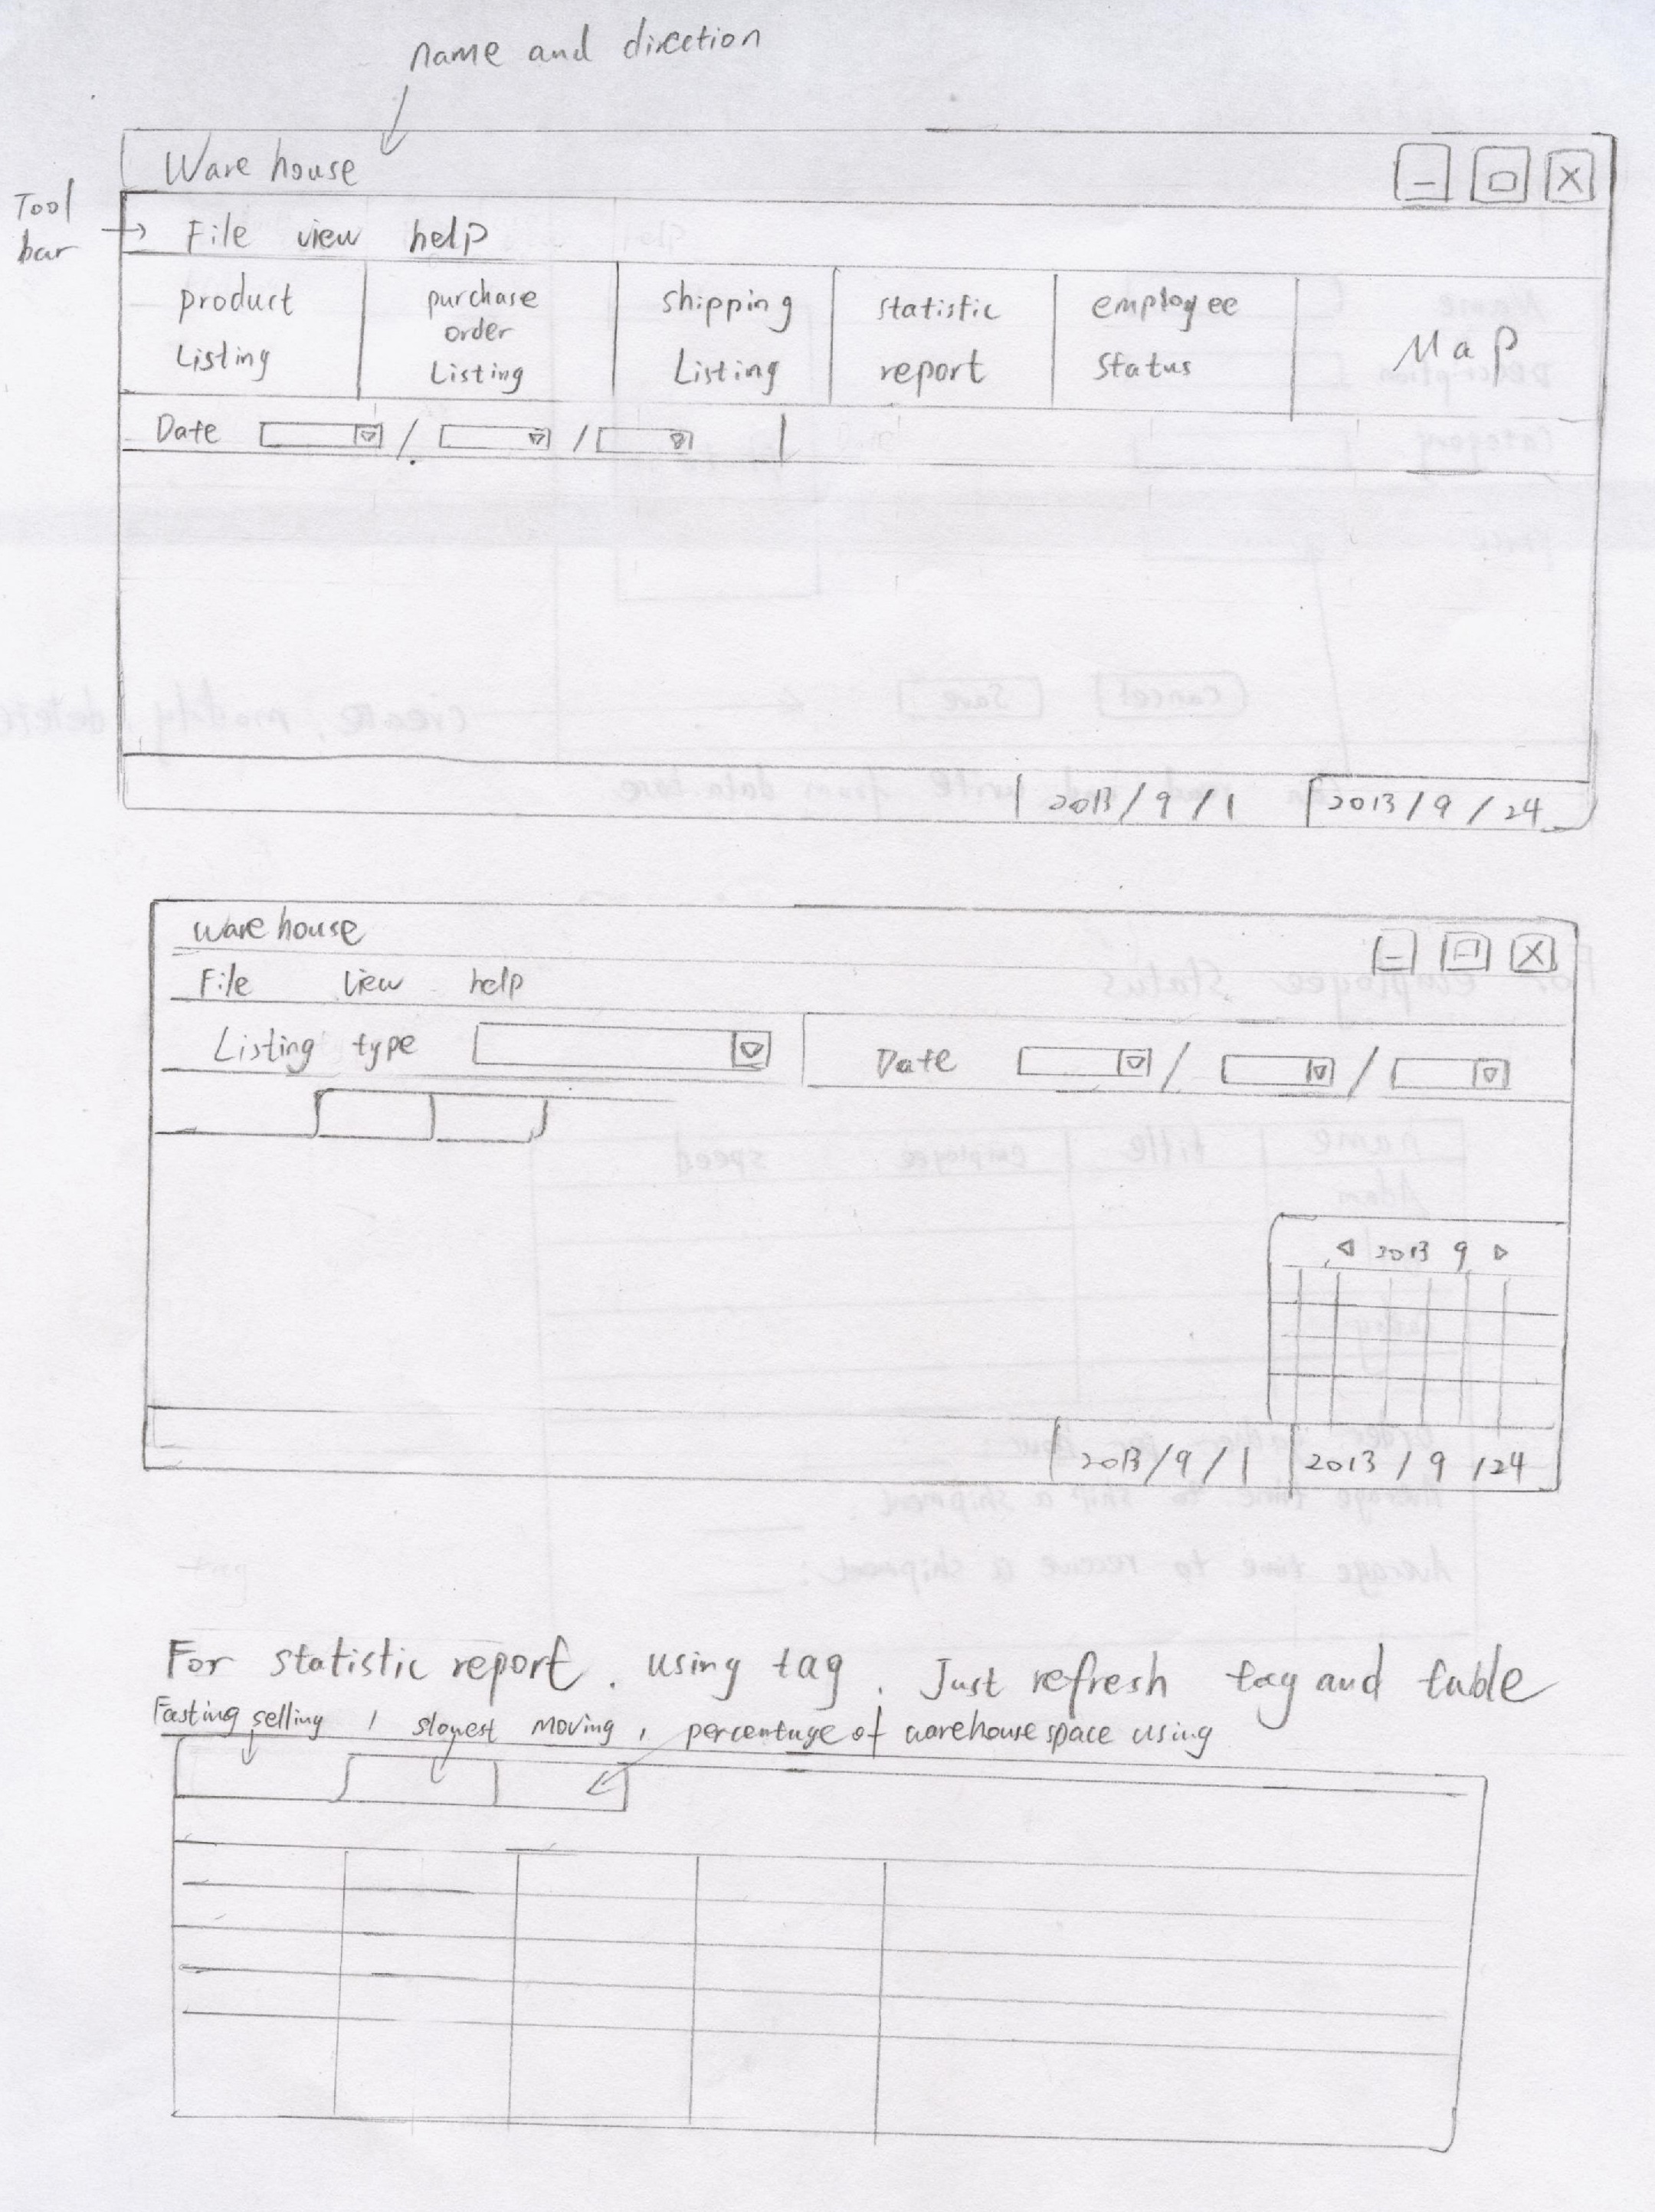 name and direction
Ware house
Tool
bar
File view help
product
Listing
purchase
order
Listing
shipping
Listing
statistic
report
employee
status
Map
Date / /
2013/9/1
2013/9/24
ware house
File view help
Listing type
Date / /
2013 9
2013/9/1
2013/9/24
For statistic report. using tag. Just refresh tag and table
Fasting selling, slowest moving, percentage of warehouse space using